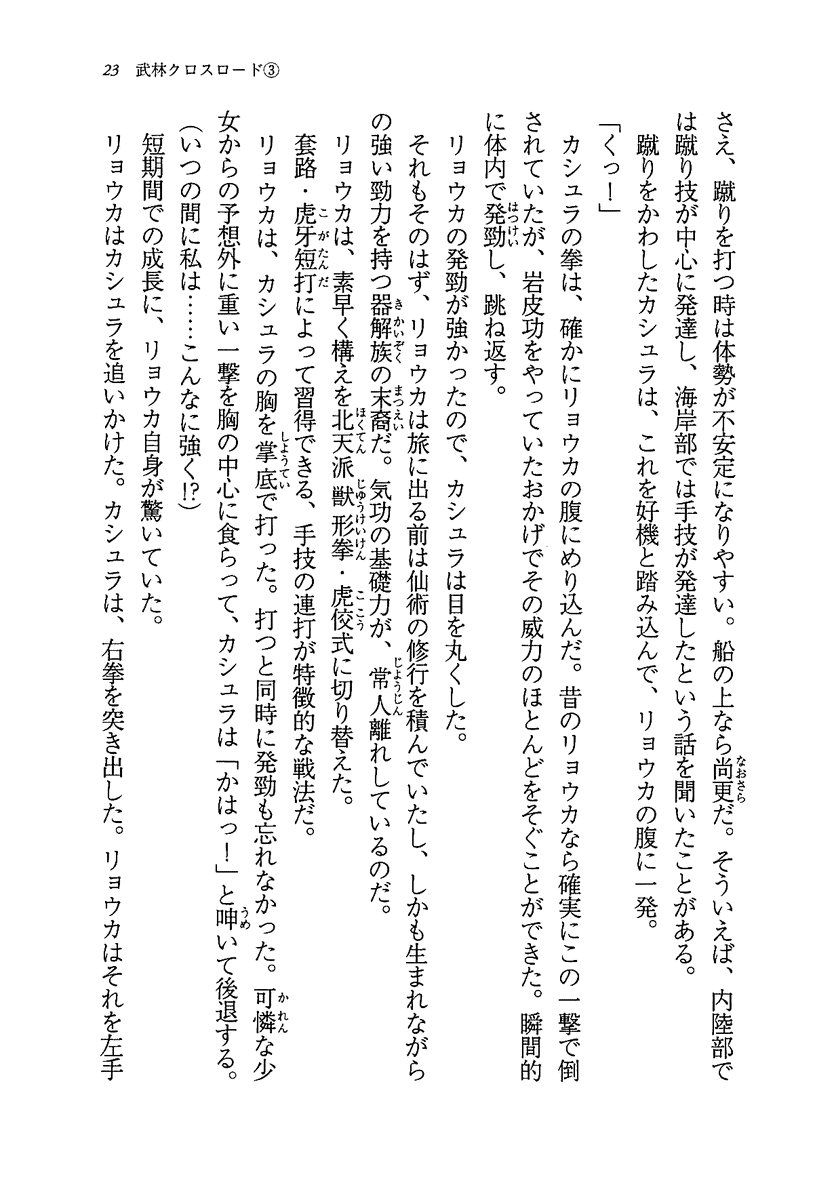 23 武林クロスロード③
さえ、蹴りを打つ時は体勢が不安定になりやすい。船の上なら尚更だ。そういえば、内陸部で
は蹴り技が中心に発達し、海岸部では手技が発達したという話を聞いたことがある。
蹴りをかわしたカシュラは、これを好機と踏み込んで、リョウカの腹に一発。
「くっ！」
カシュラの拳は、確かにリョウカの腹にめり込んだ。昔のリョウカなら確実にこの一撃で倒
されていたが、岩皮功をやっていたおかげでその威力のほとんどをそぐことができた。瞬間的
に体内で発勁し、跳ね返す。
リョウカの発勁が強かったので、カシュラは目を丸くした。
それもそのはず、リョウカは旅に出る前は仙術の修行を積んでいたし、しかも生まれながら
の強い勁力を持つ器解族の末裔だ。気功の基礎力が、常人離れしているのだ。
リョウカは、素早く構えを北天派獣形拳・虎佼式に切り替えた。
套路・虎牙短打によって習得できる、手技の連打が特徴的な戦法だ。
リョウカは、カシュラの胸を掌底で打った。打つと同時に発勁も忘れなかった。可憐な少
女からの予想外に重い一撃を胸の中心に食らって、カシュラは「かはっ！」と呻いて後退する。
（いつの間に私は……こんなに強く!?）
短期間での成長に、リョウカ自身が驚いていた。
リョウカはカシュラを追いかけた。カシュラは、右拳を突き出した。リョウカはそれを左手